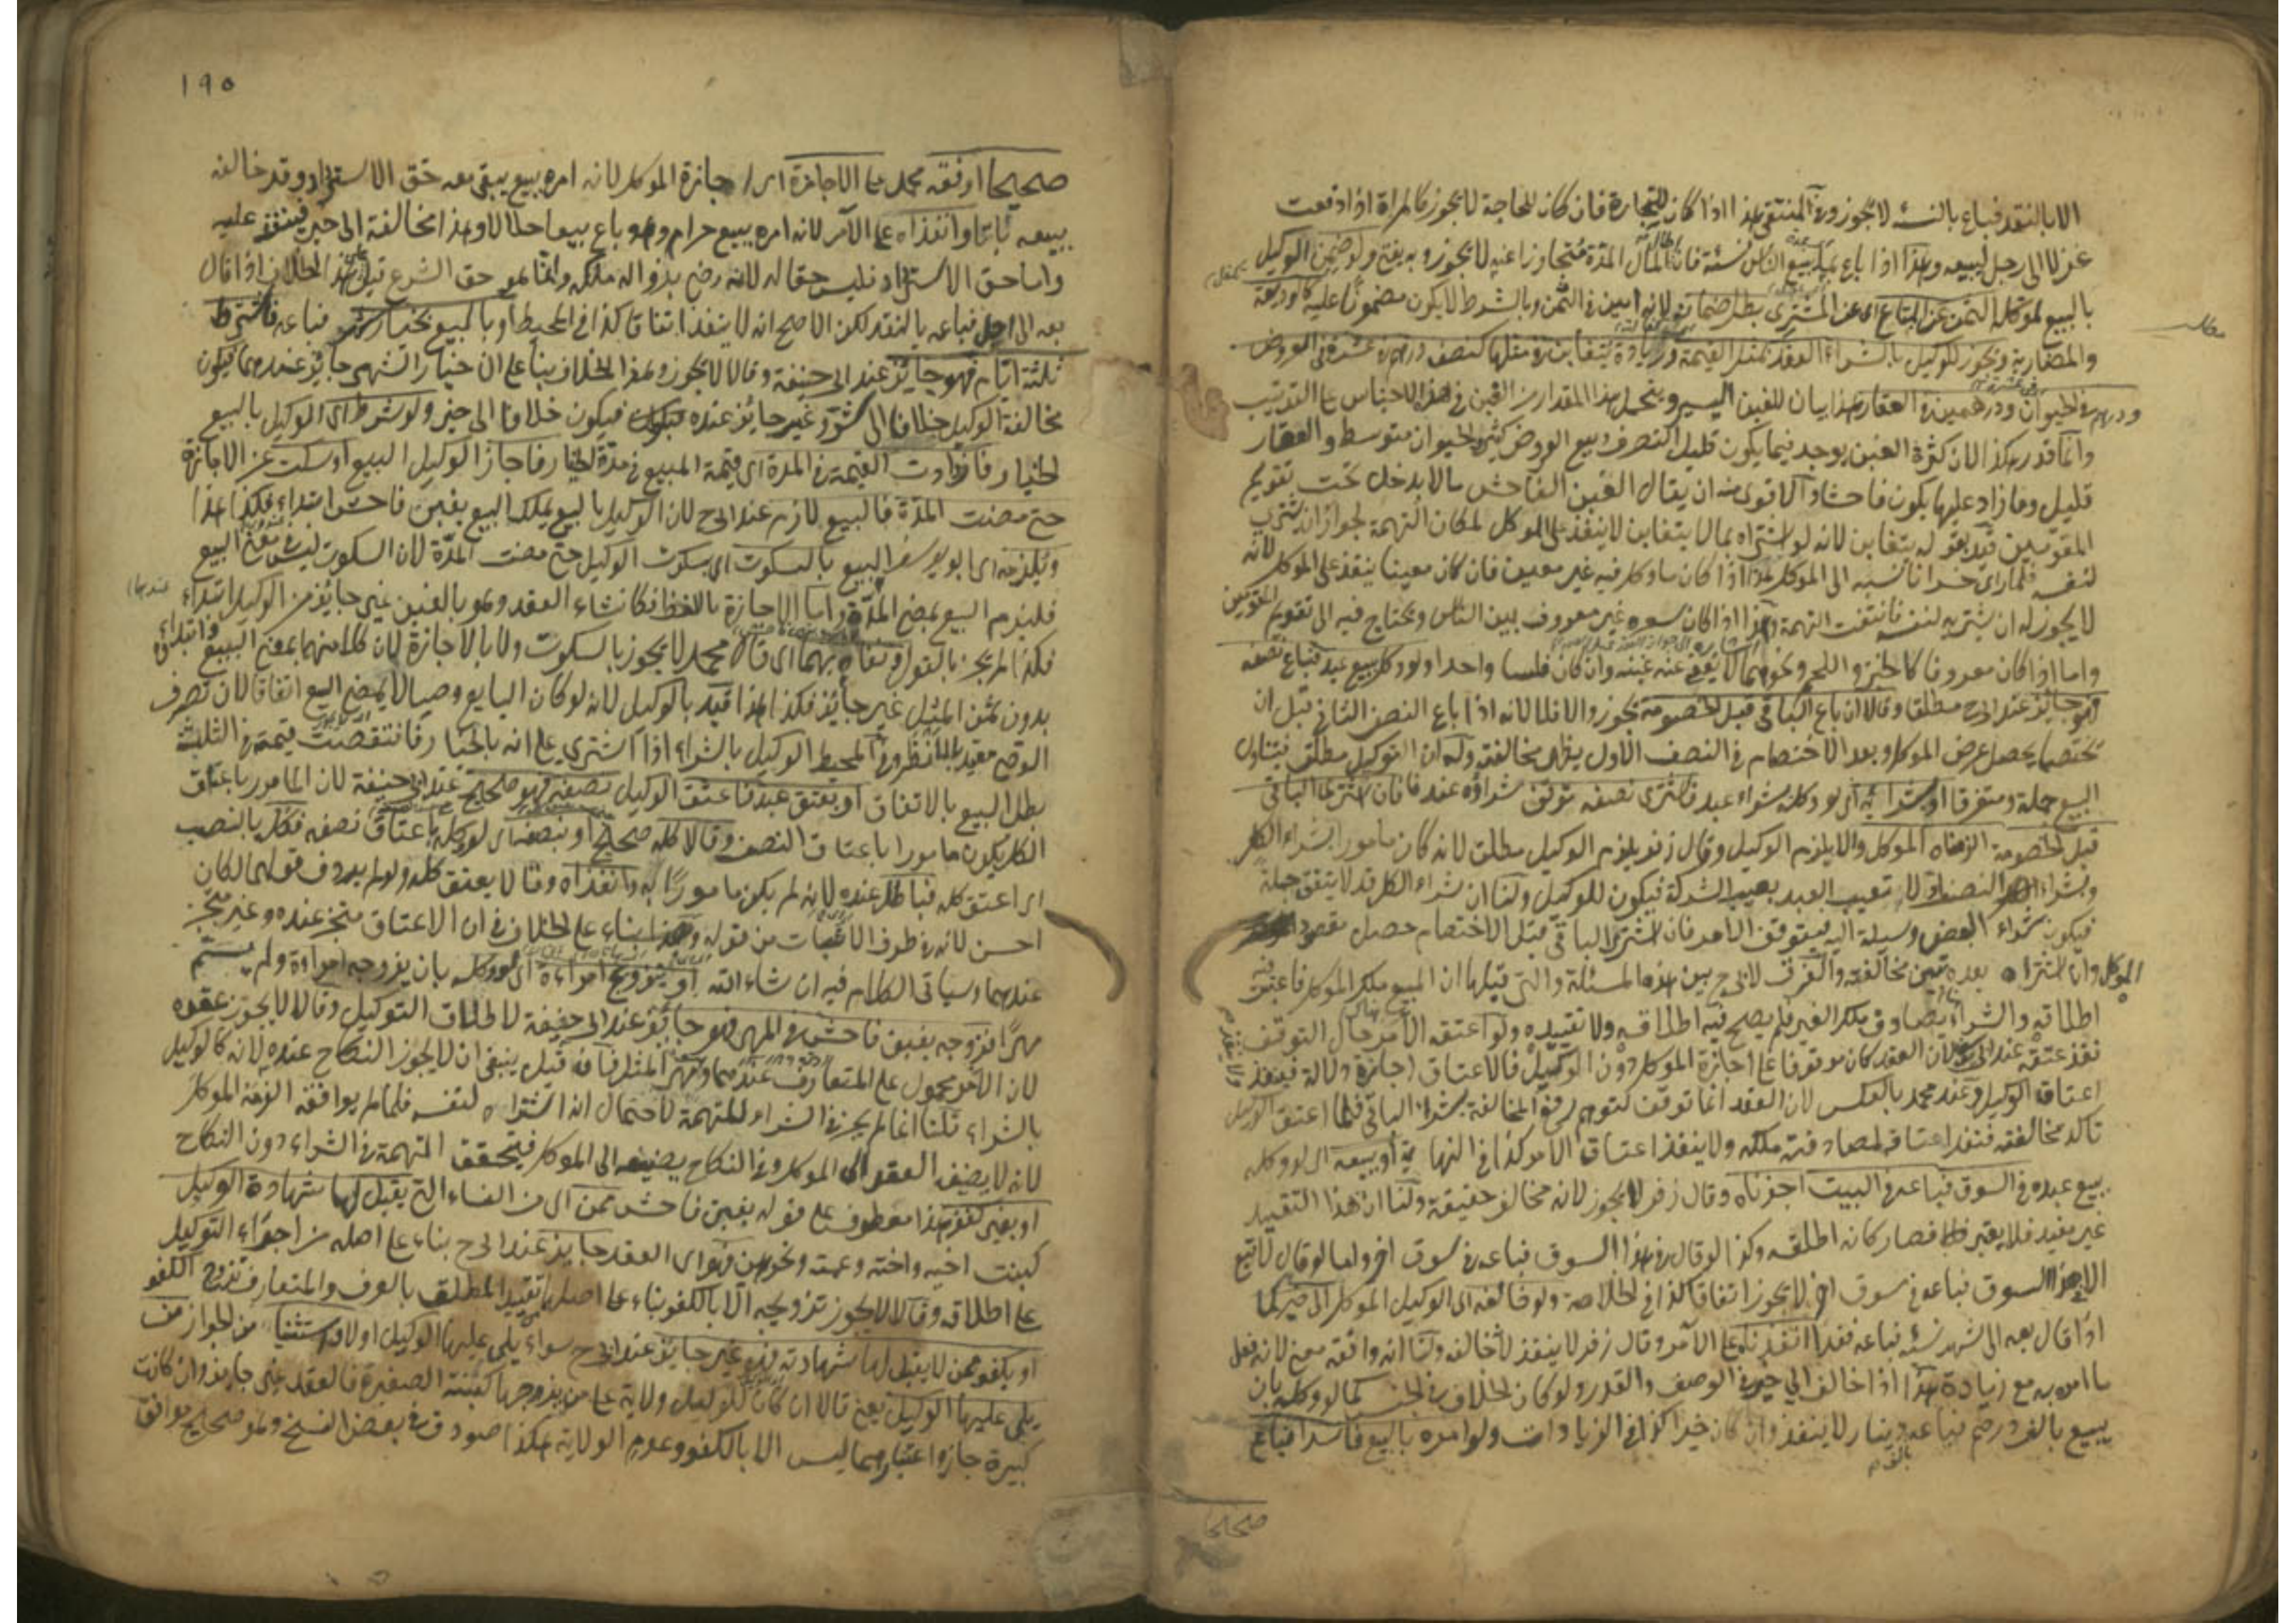 الا بالنقد فباع بالنسئة لا يجوز وفي المنتقى هذا اذا كان للتجارة فان كان للحاجة لا يجوز كالمرأة اذا دفعت
غزلا الى رجل ليبيعه وهذا اذا باع بما يبيع الناس نسئة فان اطال المدة متجاوزا عنه لا يجوز وبه يفتى ولو ضمن الوكيل
بالبيع لموكله الثمن عن المبتاع اى عن المشترى بطل ضمانه لانه امين في الثمن وبالشرط لا يكون مضمونا عليه كالوديعة
والمضاربة ويجوز للوكيل بالشراء العقد بمثل القيمة وزيادة يتغابن في مثلها كنصف درهم في عشرة في العروض
ودرهم في الحيوان ودرهمين في العقار هذا بيان للغبن اليسير ويتحمل هذا المقدار من الغبن في هذه الاجناس على الترتيب
وانما قدر هكذا لان كثرة الغبن يوجد فيما يكون قليل التصرف وبيع العروض كثير والحيوان متوسط والعقار
قليل وما زاد عليها يكون فاحشا والاقوى منه ان يقال الغبن الفاحش ما لا يدخل تحت تقويم
المقومين قيد بقوله يتغابن لانه لو اشتراه بما لا يتغابن لا ينفذ على الموكل لمكان التهمة لجواز انه اشترى
لنفسه فلما رأى خسرانا نسبه الى الموكل هذا اذا كان ما وكل فيه غير معين فان كان معينا ينفذ على الموكل لانه
لا يجوز له ان يشتريه لنفسه فانتفت التهمة وهذا اذا كان سعره غير معروف بين الناس ويحتاج فيه الى تقويم المقومين
واما اذا كان معروفا كالخبز واللحم ونحوهما لا يعفى عنه غبنه وان كان فلسا واحدا ولو وكل ببيع عبد فباع نصفه
فهو جائز عند ابى ح مطلقا وقالا ان باع الباقي قبل الخصومة يجوز والا فلا لانه اذا باع النصف الثاني قبل ان
يختصما يحصل غرض الموكل وبعد الاختصام في النصف الاول يظهر مخالفته وله ان التوكيل مطلق فيتناول
البيع جملة ومتفرقا او بشرائه اى لو وكله بشراء عبد فاشترى نصفه توقف شراؤه عندنا فان اشترى الباقي
قبل الخصومة الزمناه الموكل والا يلزم الوكيل وقال زفر يلزم الوكيل مطلقا لانه كان مامورا بشراء الكل
وبشراء النصف تعيب العبد بعيب الشركة فيكون للوكيل ولنا ان شراء الكل قد لا يتفق جملة
فيكون شراء البعض وسيلة اليه فيتوقف الامر فان اشترى الباقي قبل الاختصام حصل مقصود
الموكل وان اشتراه بعده تعين مخالفته والفرق لابى ح بين هذه المسئلة والتى قبلها ان المبيع ملك الموكل فاعتبر فيه
اطلاقه والشراء يصادف ملك الغير فلم يصح فيه اطلاقه ولا تقييده ولو اعتقه الآمر حال التوقف
نفذ عتقه عند ابى يوسف لان العقد كان موقوفا على اجازة الموكل دون الوكيل فالاعتاق اجازة دلالة فينفذ ولا ينفذ
اعتاق الوكيل وعند محمد بالعكس لان العقد انما توقف لتوهم رفع المخالفة بشراء الباقي فلما اعتق الوكيل
تأكد مخالفته فنفذ اعتاقه لمصادفته ملكه ولا ينفذ اعتاق الآمر كذا في النهاية او ببيعه اى لو وكله
ببيع عبده في السوق فباعه في البيت اجزناه وقال زفر لا يجوز لانه مخالف حقيقة ولنا ان هذا التقييد
غير مفيد فلا يعتبر فصار كانه اطلقه وكذا لو قال في هذا السوق فباعه في سوق اخر واما لو قال لا تبع
الا في هذا السوق فباعه في سوق اخر لا يجوز اتفاقا كذا في الخلاصة ولو خالفه اى الوكيل الموكل الى خير كما
اذا قال بعه الى شهر نسئة فباعه نقدا انفذناه على الآمر وقال زفر لا ينفذ لانه خالفه ولنا انه وافقه معنى لانه فعل
ما امره به مع زيادة هذا اذا خالف الى خير في الوصف والقدر ولو كان الخلاف في الجنس كما لو وكله بان
يبيع بالف درهم فباعه بالف دينار لا ينفذ وان كان خيرا كذا في الزيادات ولو امره بالبيع فاسدا فباع
صحيحا
١٩٥
صحيحا اوقفه محمد على الاجازة اى اجازة الموكل لانه امره ببيع يبقى معه حق الاسترداد وقد خالفه
ببيعه باتا وانفذاه على الآمر لانه امره ببيع حرام وهو باع بيعا حلالا وهذا مخالفة الى خير فينفذ عليه
واما حق الاسترداد فليس حقا له لانه رضى بزواله ملكه وانما هو حق الشرع قيل هذا الخلاف اذا قال
بعه الى اجل فباعه بالنقد لكن الاصح انه لا ينفذ اتفاقا كذا في المحيط او بالبيع بخيار شهر فباعه فاشترط
ثلثة ايام فهو جائز عند ابى حنيفة وقالا لا يجوز وهذا الخلاف بناء على ان خيار الشهر جائز عندهما فيكون
مخالفة الوكيل خلافا الى شر وغير جائز عنده فيكون خلافا الى خير ولو شرط اى الوكيل بالبيع
الخيار فازدادت القيمة في المدة اى قيمة المبيع في مدة الخيار فاجاز الوكيل البيع او سكت عن الاجازة
حتى مضت المدة فالبيع لازم عند ابى ح لان الوكيل بالبيع يملك البيع بغبن فاحش ابتداء فكذا هذا
ويلزمه اى ابو يوسف البيع بالسكوت اى بسكوت الوكيل حتى مضت المدة لان السكوت ليس في معنى البيع
فيلزم البيع بمضى المدة واما الاجازة باللفظ فكانشاء العقد وهو بالغبن غير جائز من الوكيل ابتداء عندهما
فكذا لم يجز بالقول ونفاه بهما اى قال محمد لا يجوز بالسكوت ولا بالاجازة لان كلا منهما بمعنى البيع وابتداؤه
بدون ثمن المثل غير جائز فكذا هذا قيد بالوكيل لانه لو كان البايع وصيا لا يمضى البيع اتفاقا لان تصرف
الوصى مقيد بالنظر وفي المحيط الوكيل بالشراء اذا اشترى على انه بالخيار فانتقصت قيمته في الثلث
بطل البيع بالاتفاق او بعتق عبد فاعتق الوكيل نصفه فهو صحيح عند ابى حنيفة لان المامور باعتاق
الكل يكون مامورا باعتاق النصف وقالا كله صحيح او بنصفه اى لو وكله باعتاق نصفه فكل بالنصب
اى اعتق كله فباطل عنده لانه لم يكن مامورا به وانفذاه وقالا يعتق كله ولو لم يردف قولهما لكان
احسن لانه في طرف الاثبات من قوله وهذا بناء على الخلاف في ان الاعتاق متجز عنده وغير متجز
عندهما وسياتى الكلام فيه ان شاء الله او بتزويج امرأة اى لو وكله بان يزوجه امرأة ولم يسم
مهرا فزوجه بغبن فاحش في المهر فهو جائز عند ابى حنيفة لاطلاق التوكيل وقالا لا يجوز عقده
لان الآمر محمول على المتعارف عندهما وهو مهر المثل فان قيل ينبغى ان لا يجوز النكاح عنده لانه كالوكيل
بالشراء قلنا انما لم يجز في الشراء للتهمة لاحتمال انه اشتراه لنفسه فلما لم يوافقه الزمه الموكل
لانه لا يضيف العقد الى الموكل وفي النكاح يضيفه الى الموكل فيتحقق التهمة في الشراء دون النكاح
او بغير كفو هذا معطوف على قوله بغبن فاحش ممن اى من النساء التى يقبل لها شهادة الوكيل
كبنت اخيه واخته وعمته ونحوهن فهو اى العقد جايز عند ابى ح بناء على اصله من اجراء التوكيل
على اطلاقه وقالا لا يجوز تزويجه الا بالكفو بناء على اصلهما تقييد المطلق بالعرف والمتعارف تزوج الكفو
او بكفو ممن لا يقبل لها شهادته فهو غير جايز عند ابى ح سواء يلى عليها الوكيل او لا واستثنيا من الجواز من
يلى عليها الوكيل يعنى قالا ان كان للوكيل ولاية على من يزوجها كبنته الصغيرة فالعقد غير جايز وان كانت
كبيرة جاز واعتبارهما ليس الا بالكفو وعدم الولاية هكذا صودف في بعض النسخ وهو صحيح موافق